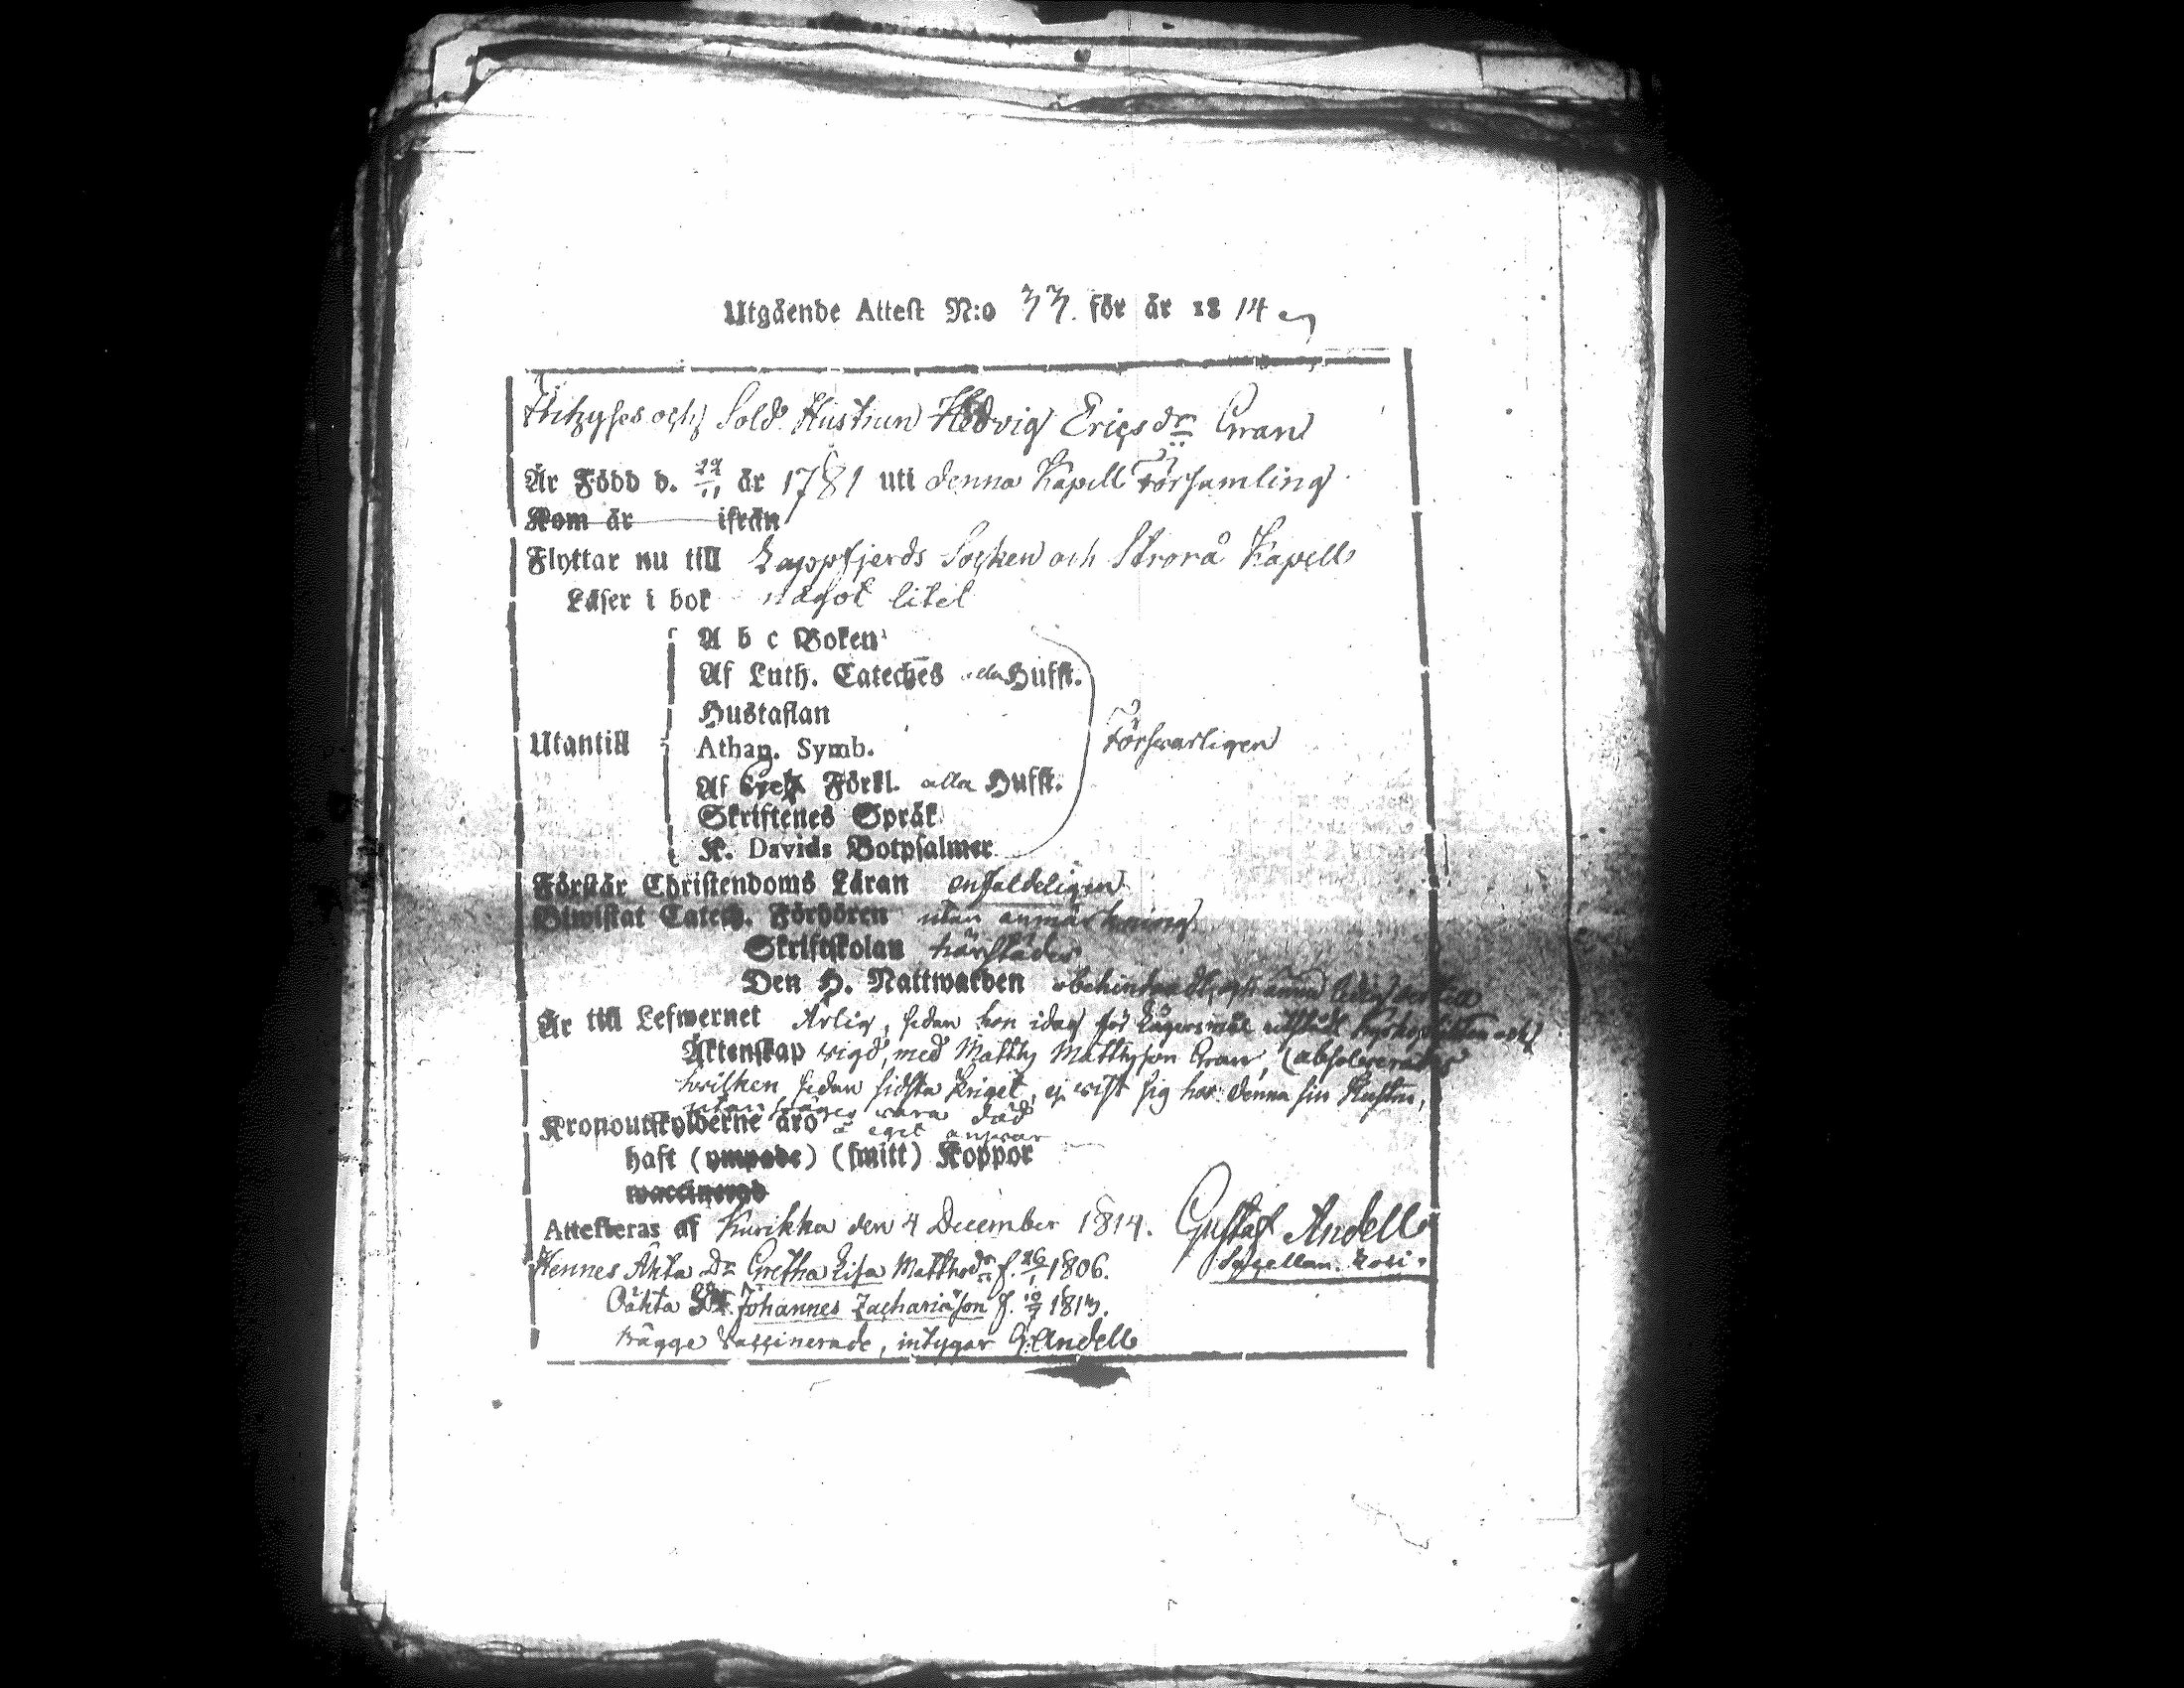 Utgående Attest N:o 33. för år 1814
och Sold. Hustrun Hedvig Ericsdr Gran
Är Född d. 29/11 år 1781 uti denna Kapell Församling
Kom år ifrån
Flyttar nu till Lappfjerds Socken och Storå Kapell
Läser i bok något litet
A b c Boken
Af Luth. Cateches alla Hufst.
Hustaflan
Utantill Athan. Symb. Förswarligen
Af Förkl. alla Hufst.
Skriftenes Språk
K. Davids Botpsalmer
Förstår Christendoms Läran enfaldeligen
Biwistat Catech. Förhören utan anmärkning
Skriftskolan härstädes
Den H. Nattwarden obehindradt,
Är till Lefwernet Ärlig, sedan hon idag för Lägersmål
Äktenskap wigd, med Matths Mattsson Gran, (absolverades
hwilken sedan sidsta Kriget, ej wist sig hos denna sin Hustru,
utan säges wara död
Kronoutskylderne äro å eget answar
haft (ympade) (smitt) Koppor
waccinerad
Attesteras af Kurikka den 4 December 1814. Gustaf Andell
Hennes Äkta Dr Gretha Lisa Mattsdr f. 26/1 1806. Sacellan.
Oäkta Johannes Zachariæson f. 10/7 1813.
bägge vaccinerade, intygar G: Andell